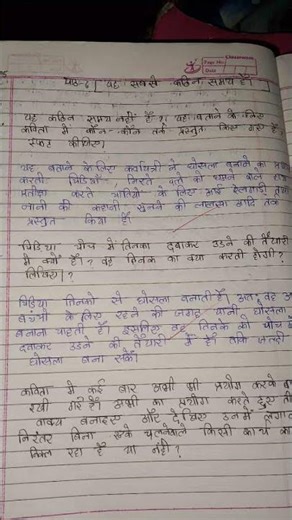 पाठ-6 | यह सबसे कठिन समय नहीं |
यह कठिन समय नहीं है ? यह बताने के लिए
कविता में कौन-कौन तर्क प्रस्तुत किए गए हैं ?
स्पष्ट कीजिए।
यह बताने के लिए कवयित्री ने घोंसला बनाने का
करती चिड़िया गिरते पत्ते को थामने वाले हाथ
प्रतीक्षा करते यात्रियों के लिए आई रेलगाड़ी तथा
नानी की कहानी सुनने की लालसा आदि तर्क
प्रस्तुत किया है।
चिड़िया चोंच में तिनका दबाकर उड़ने की तैयारी
में क्यों है ? वह तिनके का क्या करती होगी ?
लिखिए। ?
चिड़िया तिनकों से घोंसला बनाती है। अतः वह
बच्चों के लिए रहने की जगह यानी घोंसला
बनाना चाहती है। इसलिए वह तिनके को चोंच
दबाकर उड़ने की तैयारी में है। ताकि जल्दी
घोंसला बना सके।
कविता में कई बार अभी भी प्रयोग करके
रखी गई हैं। अभी का प्रयोग करते हुए
वाक्य बनाइए और देखिए उनमें
निरंतर बिना रुके चलनेवाले किसी कार्य का
मिल रहा है या नहीं ?